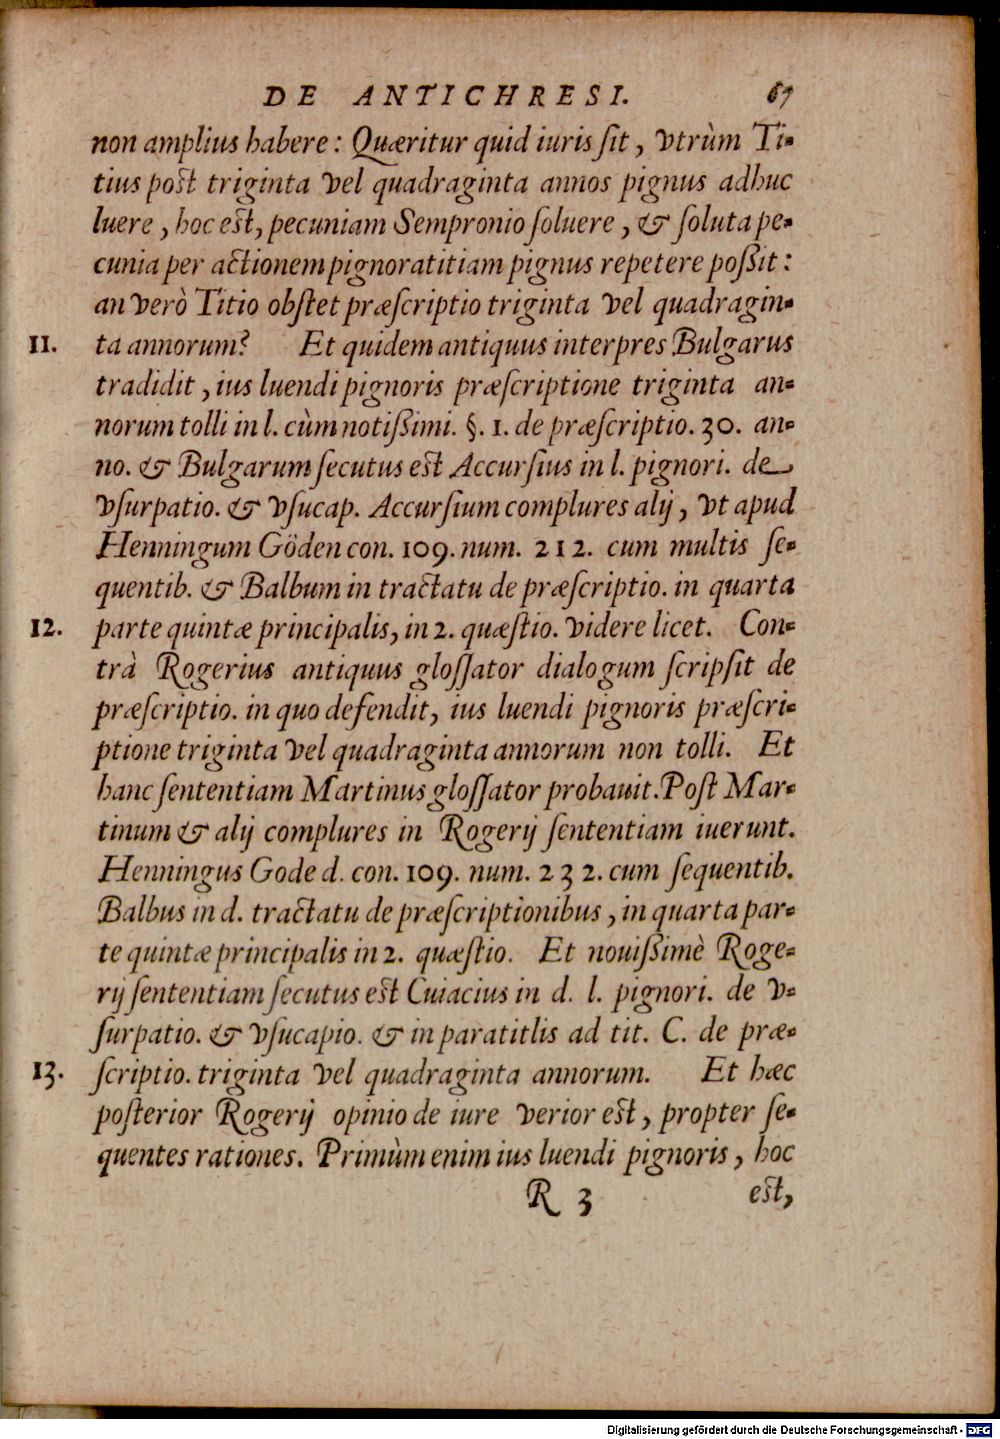 DE ANTICHRESI. 67
non amplius habere: Quæritur quid iuris ſit, vtrùm Ti-
tius poſt triginta vel quadraginta annos pignus adhuc
luere, hoc eſt, pecuniam Sempronio ſoluere, & ſoluta pe-
cunia per actionem pignoratitiam pignus repetere poßit:
an verò Titio obſtet præſcriptio triginta vel quadragin-
11. ta annorum? Et quidem antiquus interpres Bulgarus
tradidit, ius luendi pignoris præſcriptione triginta an-
norum tolli in l. cùm notißimi. §. 1. de præſcriptio. 30. an-
no. & Bulgarum ſecutus eſt Accurſius in l. pignori. de
vſurpatio. & vſucap. Accurſium complures alij, vt apud
Henningum Göden con. 109. num. 212. cum multis ſe-
quentib. & Balbum in tractatu de præſcriptio. in quarta
12. parte quintæ principalis, in 2. quæſtio. videre licet. Con-
trà Rogerius antiquus gloſſator dialogum ſcripſit de
præſcriptio. in quo defendit, ius luendi pignoris præſcri-
ptione triginta vel quadraginta annorum non tolli. Et
hanc ſententiam Martinus gloſſator probauit. Poſt Mar-
tinum & alij complures in Rogerij ſententiam iuerunt.
Henningus Gode d. con. 109. num. 232. cum ſequentib.
Balbus in d. tractatu de præſcriptionibus, in quarta par-
te quintæ principalis in 2. quæſtio. Et nouißimè Roge-
rij ſententiam ſecutus eſt Cuiacius in d. l. pignori. de v-
ſurpatio. & vſucapio. & in paratitlis ad tit. C. de præ-
13. ſcriptio. triginta vel quadraginta annorum. Et hæc
poſterior Rogerij opinio de iure verior eſt, propter ſe-
quentes rationes. Primùm enim ius luendi pignoris, hoc
R 3 eſt,
Digitalisierung gefördert durch die Deutsche Forschungsgemeinschaft - DFG